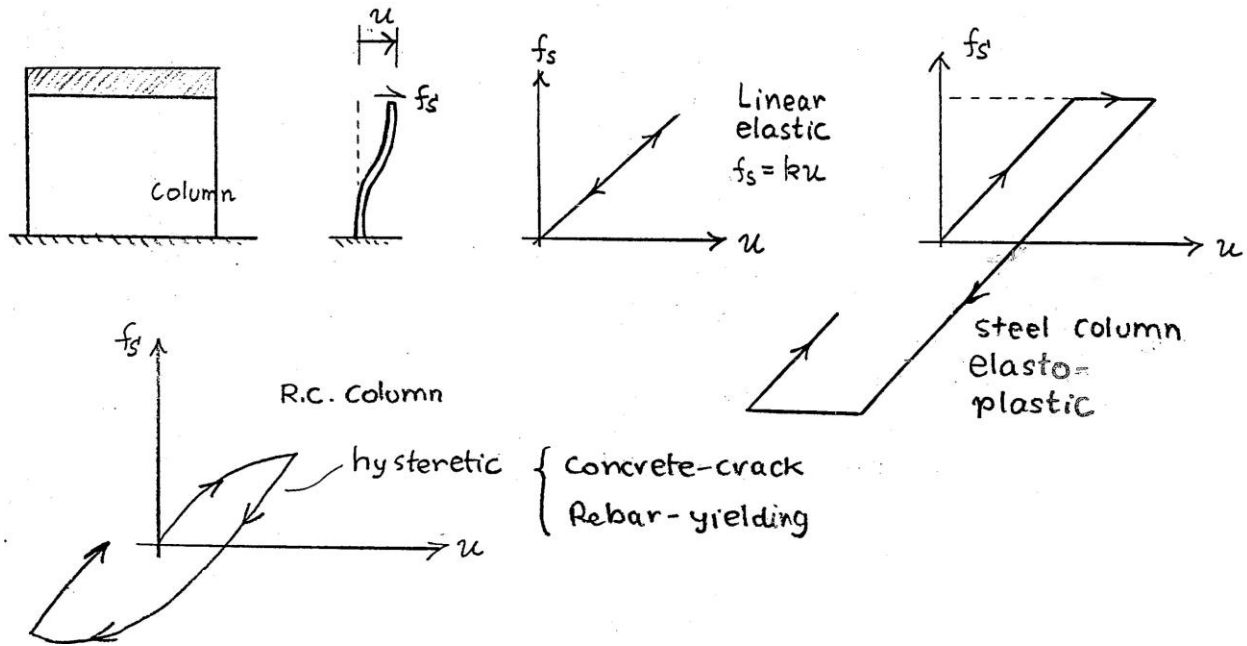 u
fs
column
fs
u
Linear
elastic
fs = ku
fs
u
steel column
elasto-
plastic
fs
R.C. column
hysteretic { concrete-crack
Rebar-yielding
u